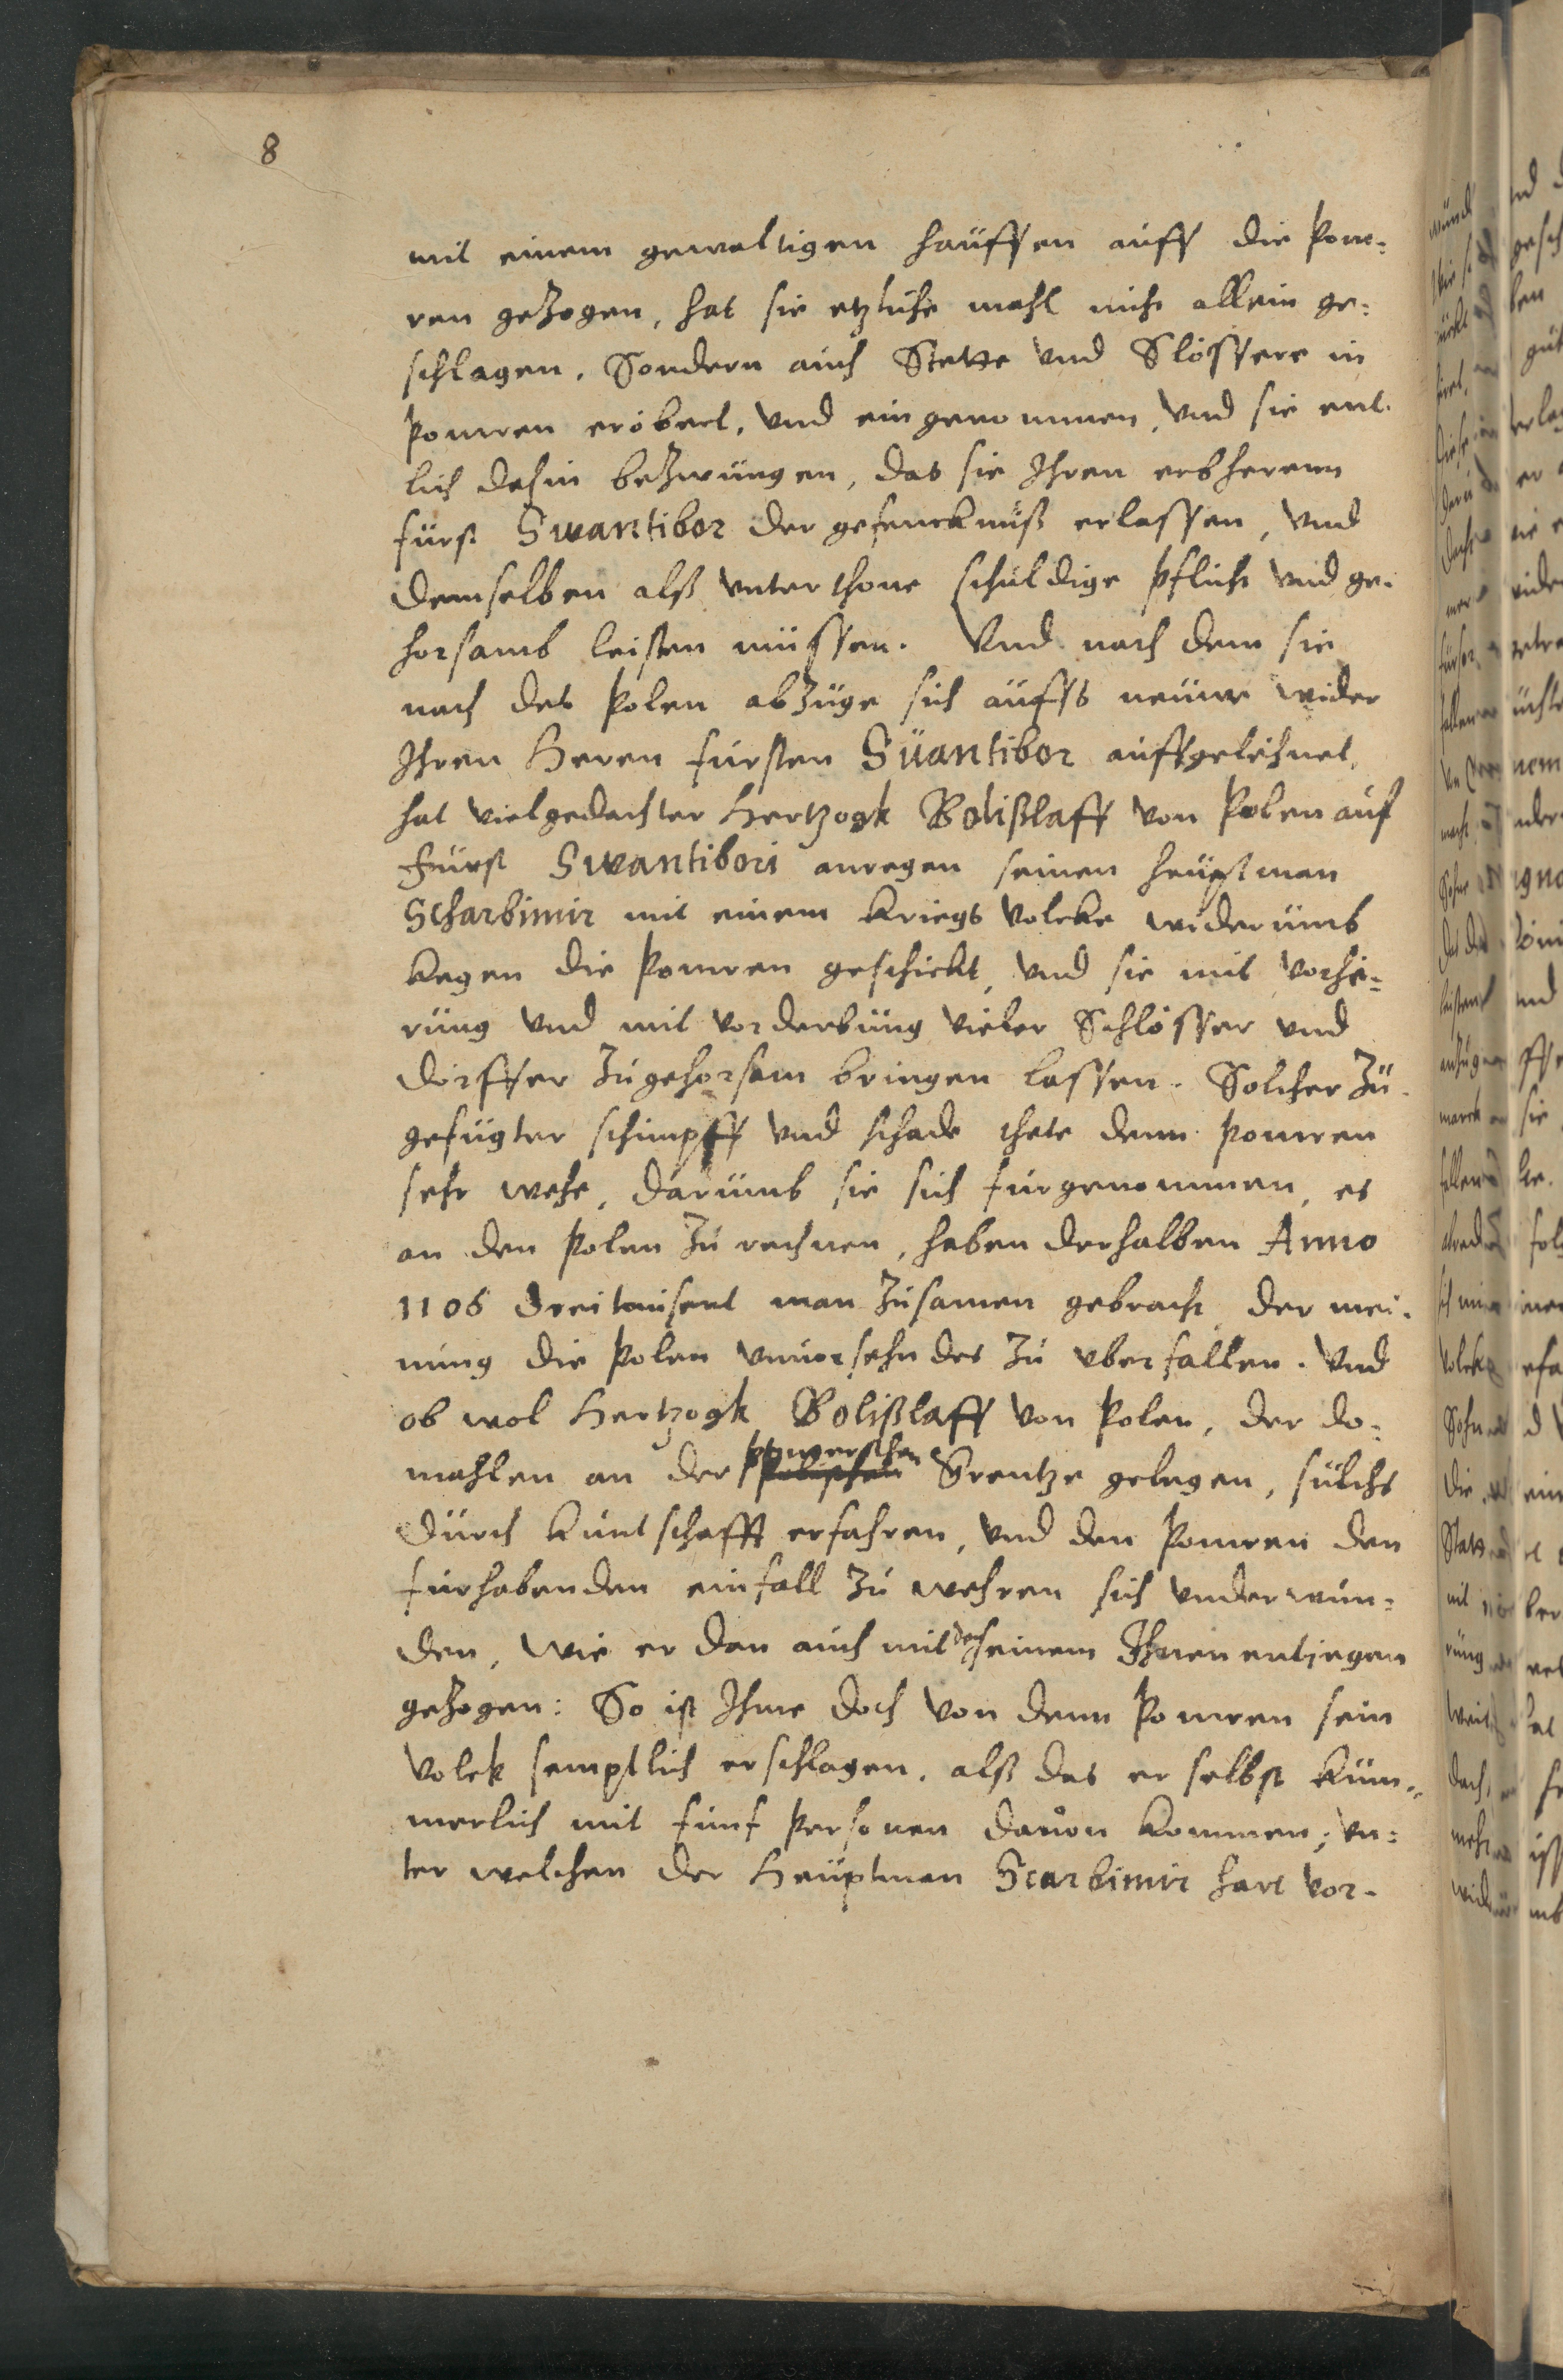 8
mit einem gewaltigen hauffen auff die Pom-
ren gezogen, hat sie etzliche mahl nicht allein ge-
schlagen, Sondern auch Stette und Slössere in
Pomren erobert, und eingenommen, und sie ent-
lich dahin bezwungen, das sie Ihren erbherren
fürst Swantibor der gefencknuß erlassen, und
demselben alß unterthone schuldige pflicht und ge-
horsamb leisten müssen. Und nach dem sie
nach des Polen abzuge sich auffs neuwe wider
Ihren Heren fursten Suantibor auffgelehnet,
hat vielgedachter Hertzogk Bolißlaff von Polen auf
Fürst Swantibori anregen seinen heuptman
Scharbimir mit einem Kriegs volcke widerumb
kegen die Pomren geschickt, und sie mit vorhe-
rung und mit vorderbung vieler Schlösser und
dörffer zugehorsam bringen lassen. Solcher zu-
gefugter schimpff und schade thete denn Pomren
sehr wehe, darumb sie sich furgenommen, es
an den Polen zu rechnen, haben derhalben Anno
1106 dreitausent man zusamen gebracht der mei-
nung die Polen unuorsehndes zu uberfallen. Und
ob wol Hertzogk Bolißlaff von Polen, der do-
mahlen an der pomerschen Grentze gelegen, sulchs
durch kuntschafft erfahren, und den Pomren den
furhabenden einfall zu wehren sich underwun-
den, wie er dan auch mit den seinem Ihnen entjegen
gezogen: So ist Ihme doch von denn Pomren sein
volck semptlich erschlagen, alß das er selbst küm-
merlich mit funf Personen dauon kommen, un-
ter welchen der Heuptman Scarbimir hart vor-